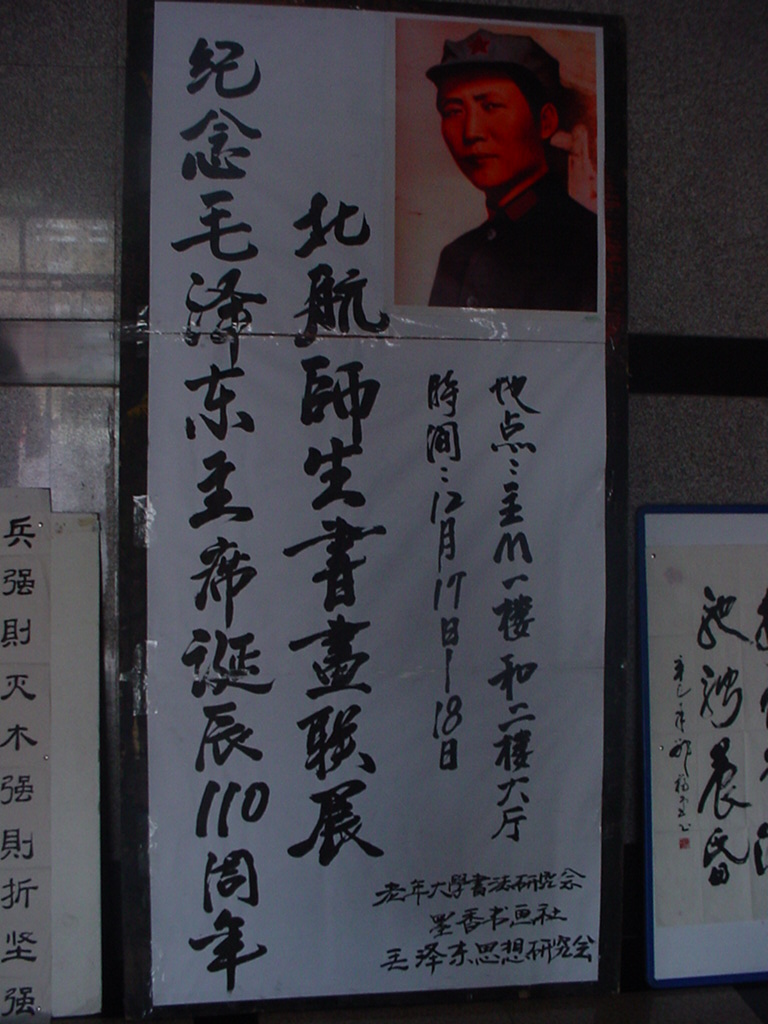 纪念毛泽东主席诞辰110周年
北航師生書畫联展
時间：12月17日-18日
地点：主M一樓和二樓大厅
老年大學書法研究会
墨香书画社
毛泽东思想研究会
兵强則灭木强則折坚强